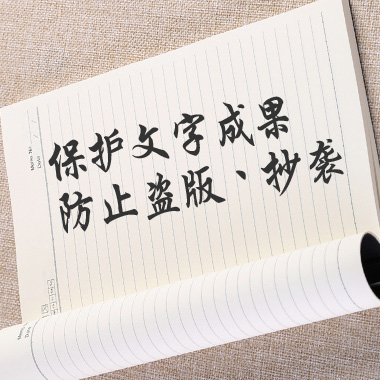 保护文字成果
防止盗版、抄袭
Memo No.
Date